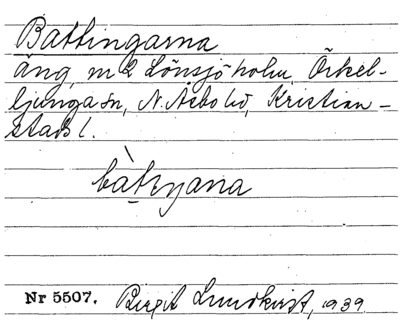 Battingarna
äng, m 2 Lönsjöholm, Örkel-
ljunga sn, N. Åsbo hd, Kristian-
stads l.
bàtɩŋana
Nr 5507. Birgit Lundkvist, 1939